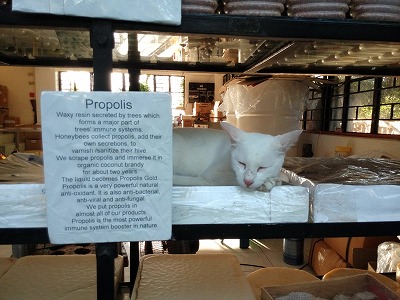 Propolis
Waxy resin secreted by trees which
forms a major part of
trees' immune systems.
Honeybees collect propolis, add their
own secretions, to
varnish /sanitize their hive.
We scrape propolis and immerse it in
organic coconut brandy
for about two years.
The liquid becomes Propolis Gold.
Propolis is a very powerful natural
anti-oxidant. It is also anti-bacterial,
anti-viral and anti-fungal.
We put propolis in
almost all of our products.
Propolis is the most powerful
immune system booster in nature.